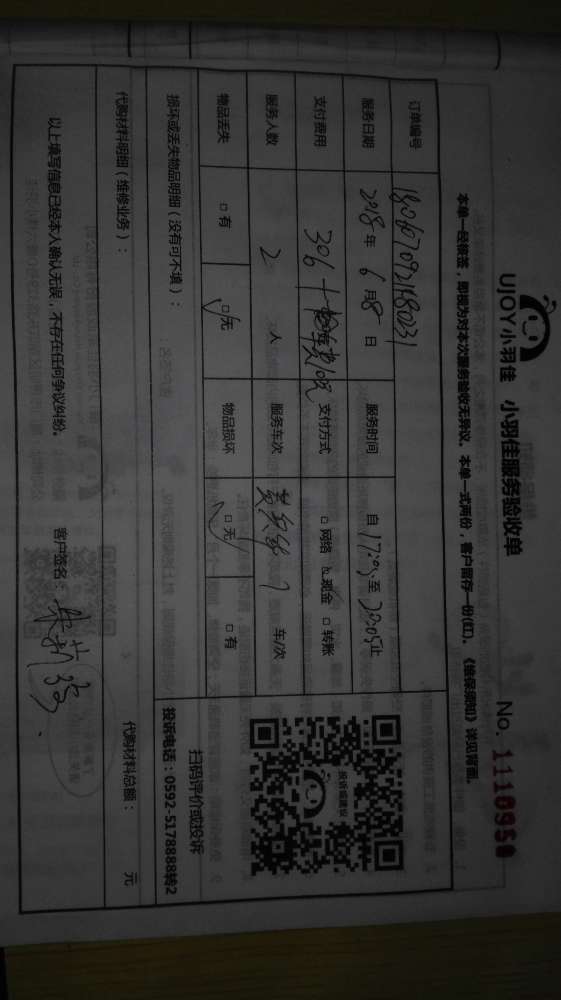 UJOY小羽佳 小羽佳服务验收单
No. 1110950
本单一经核签，即视为对本次服务验收无异议。本单一式两份，客户留存一份(红)。《维保须知》详见背面。
订单编号
服务日期 2018 年 6 月 8 日 服务时间 自 17:05 至 20:05 止
支付费用 306 支付方式 □ 网络 □ 现金 □ 转账
服务人数 2 人 服务车次 车/次
物品丢失 □ 有 □ 无 物品损坏 □ 无 □ 有
投诉或建议
扫码评价或投诉
投诉电话：0592-5178888转2
损坏或丢失物品明细（没有可不填）：
代购材料明细（维修业务）： 代购材料总额： 元
以上填写信息已经本人确认无误，不存在任何争议纠纷。 客户签名：